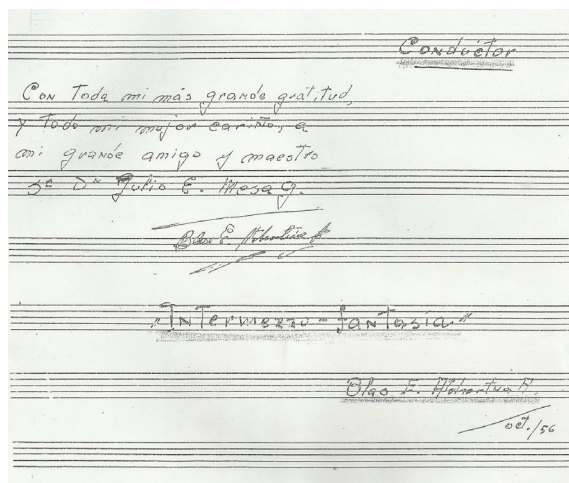 Conductor
Con Toda mi más grande gratitud,
y Todo mi mejor cariño, a
mi grande amigo y maestro
Sr Dn Julio E. Mesa G.
E.
"Intermezzo-fantasía"
Blas E.
oct./56